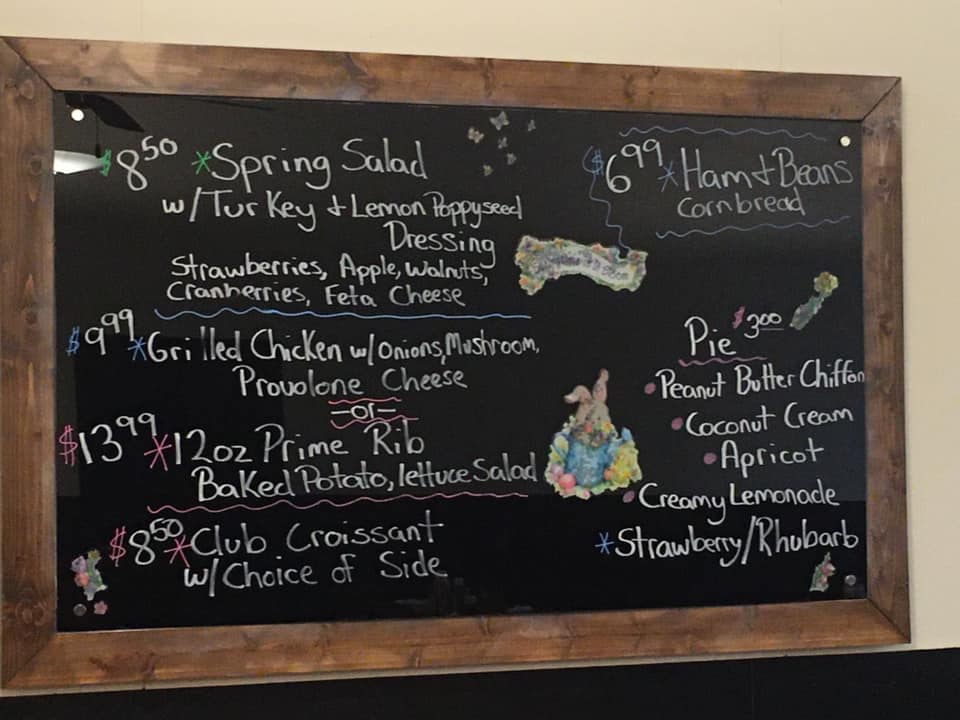 $8.50 *Spring Salad
w/Turkey + Lemon Poppyseed
Dressing
Strawberries, Apple, Walnuts,
Cranberries, Feta Cheese
$9.99 *Grilled Chicken w/Onions, Mushroom,
Provolone Cheese
-or-
$13.99 *12oz Prime Rib
Baked Potato, lettuce Salad
$8.50 *Club Croissant
w/Choice of Side
$6.99 *Ham + Beans
Cornbread
Pie $3.00
• Peanut Butter Chiffon
• Coconut Cream
• Apricot
• Creamy Lemonade
*Strawberry/Rhubarb